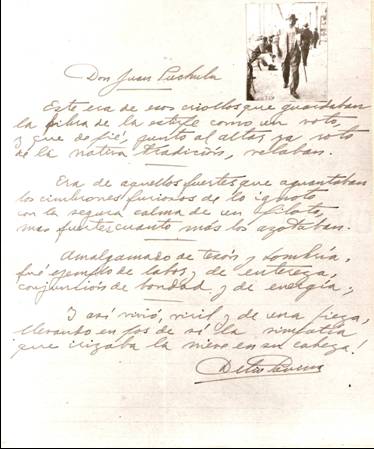 Don Juan
Este era de esos criollos que guardaban
la fibra de la estirpe como un voto,
y que de pié, junto al altar ya roto
de la nativa tradición, velaban.
Era de aquellos fuertes que aguantaban
los cimbrones furiosos de lo ignoto
con la segura calma de un piloto,
mas fuertes cuanto más los azotaban.
Amalgamado de tesón y hombría,
fué ejemplo de labor y de entereza,
conjunción de bondad y de energía;
I así vivió, viril y de una pieza,
llevando en pos de sí la simpatía
que irizaba la nieve en su cabeza!